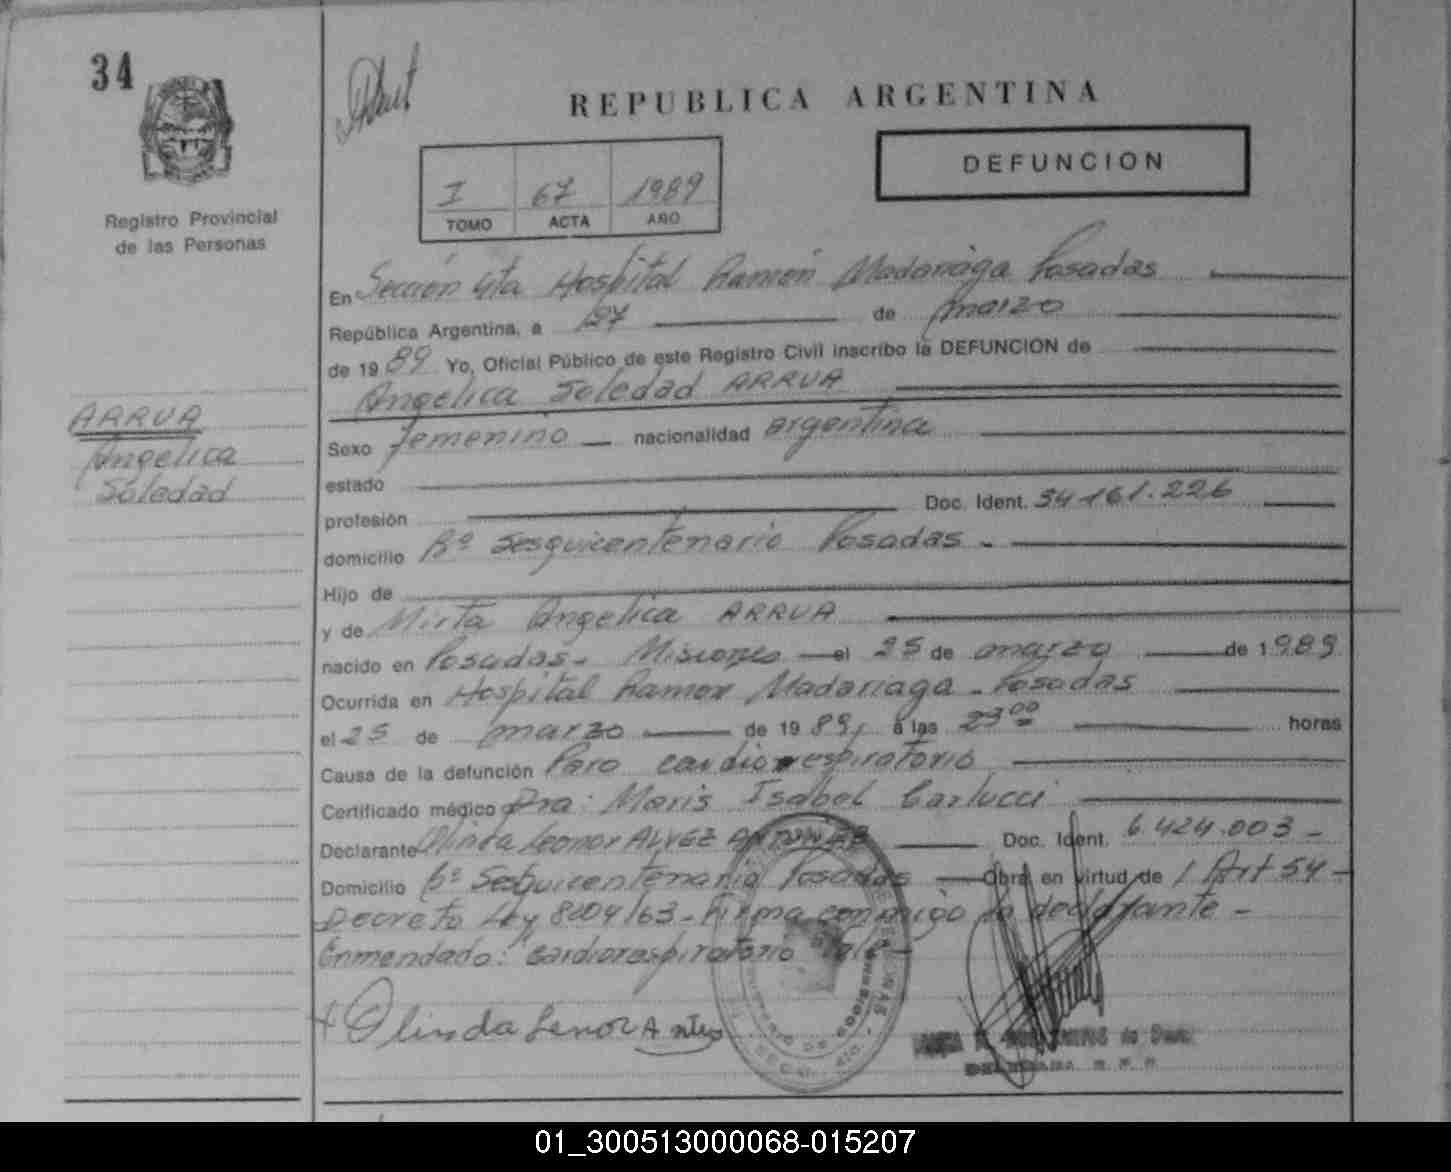 34
REPUBLICA ARGENTINA
DEFUNCION
I 67 1989
TOMO ACTA AÑO
Registro Provincial
de las Personas
En Sección 4ta Hospital Ramón Madariaga Posadas
República Argentina, a 27 de marzo
de 1989 Yo, Oficial Público de este Registro Civil inscribo la DEFUNCION de
Angelica Soledad ARRUA
ARRUA
Angelica
Soledad
Sexo femenino nacionalidad argentina
estado
profesión Doc. Ident. 34.161.226
domicilio Bº Sesquicentenario Posadas -
Hijo de
y de Mirta Angelica ARRUA
nacido en Posadas - Misiones el 25 de marzo de 1989
Ocurrida en Hospital Ramon Madariaga - Posadas
el 25 de marzo de 1989, a las 23ºº horas
Causa de la defunción Paro cardiorespiratorio
Certificado médico Dra: Maris Isabel Carlucci
Declarante Olinda Leonor ALVEZ ANTUNEZ Doc. Ident. 6.424.003 -
Domicilio Bº Sesquicentenario Posadas Obra en virtud de / Art 54 -
Decreto Ley 8204/63 - Firma conmigo la declarante -
Enmendado: cardiorespiratorio Vale -
Olinda Lenor
01_300513000068-015207